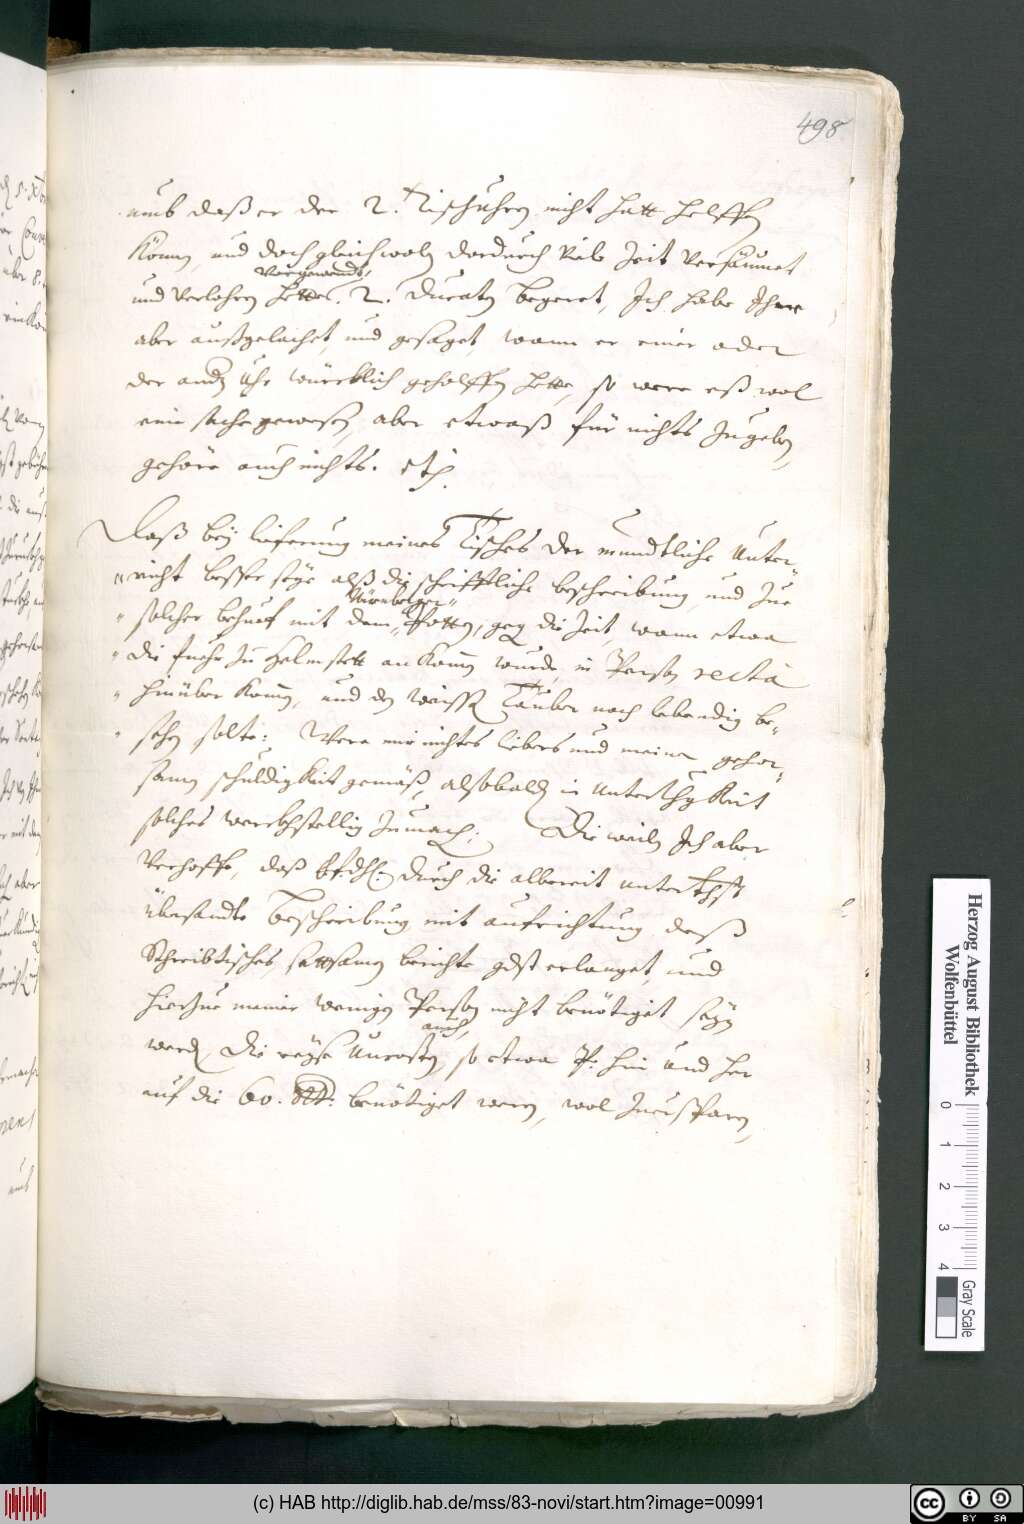 498
umb daß er der 2. Tischuhren nicht hatt helffen
können, und doch gleichwoln dardurch viel Zeit versäumet
vorgewendt,
und verlohren hettes. 2. Ducaten begeret, Ich habe Ihme
aber außgelachet, und gesaget, wann er einer oder
der andern Uhr würcklich geholffen hette, so were eß wol
ein sache gewesen, aber etwaß für nichts zugeben,
gehöre auch nichts. etc.
Daß bey lieferung meines Tisches der mundtliche Unter-
„richt besser seye alß die schrifftliche beschreibung, und zue
Nürnberger
„solcher behuef mit dem Potten, gegen die Zeit wann etwa
„die fuehr zu Helmstett ankommen wurde, in Person rectà
„hinüber kommen, und den weissen Tauber noch lebendig be-
„sehen solte: Were mir nichtes liebers und meiner gehor-
samen schuldigkeit gemäß, alsobalden in Unterthgkeit
solches werckhstellig zumachen; Die weiln Ich aber
verhoffe, daß E. f. dhl. durch die albereit unterthgst
übersandte beschreibung mit aufrichtung deß
Schreibtisches sattsamen bericht gdst erlanget, und
hierzue meiner wenigen Person nicht benötiget seyn
auch,
werden, die reyse Uncosten, so etwa p. hin und her
auf die 60. benötiget weren, wol zuersparen,
Herzog August Bibliothek
Wolfenbüttel
0 1 2 3 4
Gray Scale
(c) HAB http://diglib.hab.de/mss/83-novi/start.htm?image=00991
cc BY SA